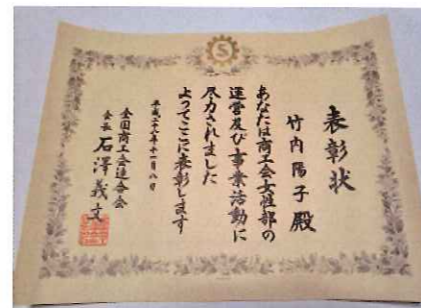 表彰状
竹内陽子殿
あなたは商工会女性部の
運営及び事業活動に
尽力されました
よってここに表彰します
平成二十八年十一月八日
全国商工会連合会
会長 石澤義文